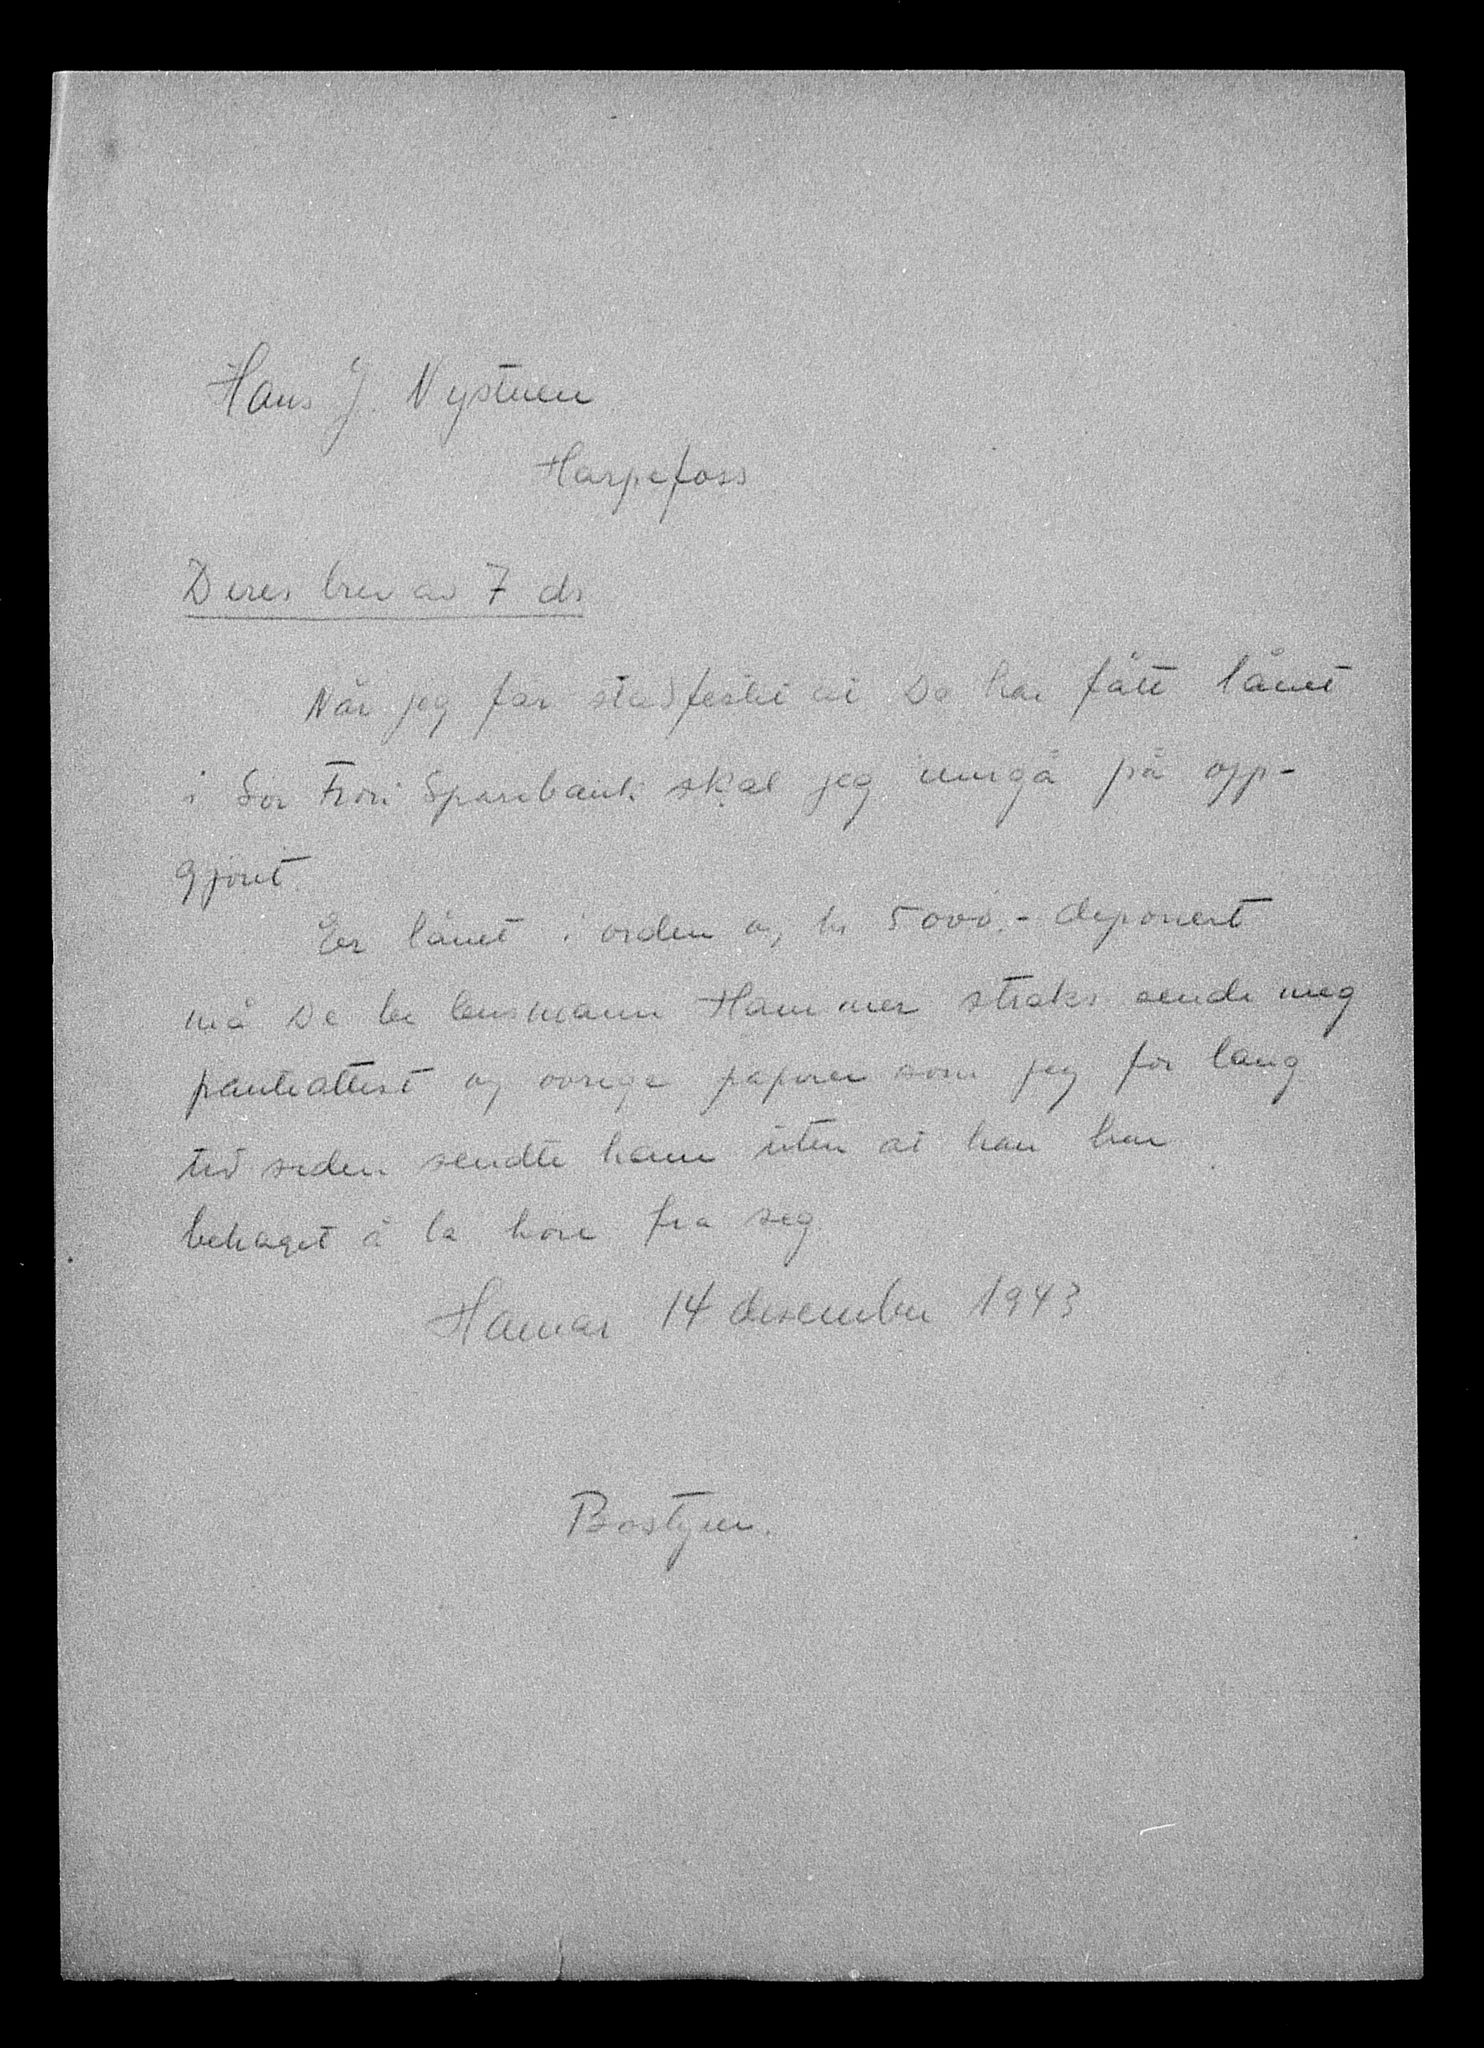 Hans J. Nystuen
Harpefoss
Deres brev av 7 ds
Når jeg får stadfestet at De har fått lånet
i Sør Fron Sparebank skal jeg inngå på opp-
gjøret.
Er lånet i orden og kr 5000.- deponert
må De be lensmann Hammer straks sende meg
panteattest og øvrige papirer som jeg for lang
tid siden sendte ham uten at han har
behaget å la høre fra seg.
Hamar 14 desember 1943
Bostyrer.